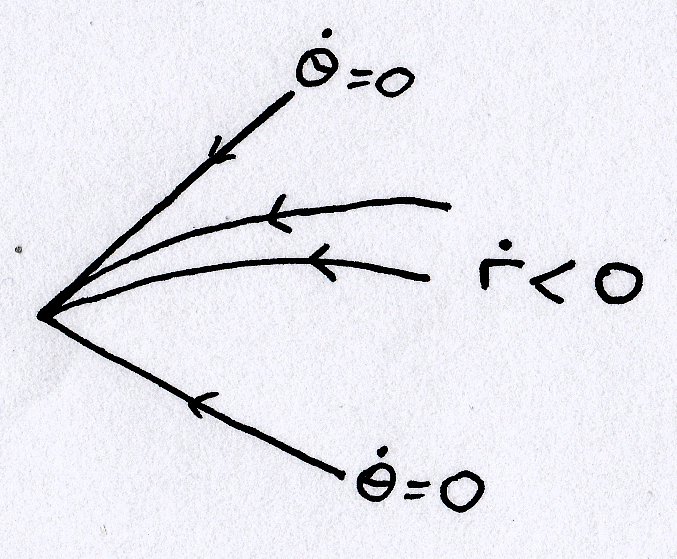 θ̇=0
ṙ<0
θ̇=0